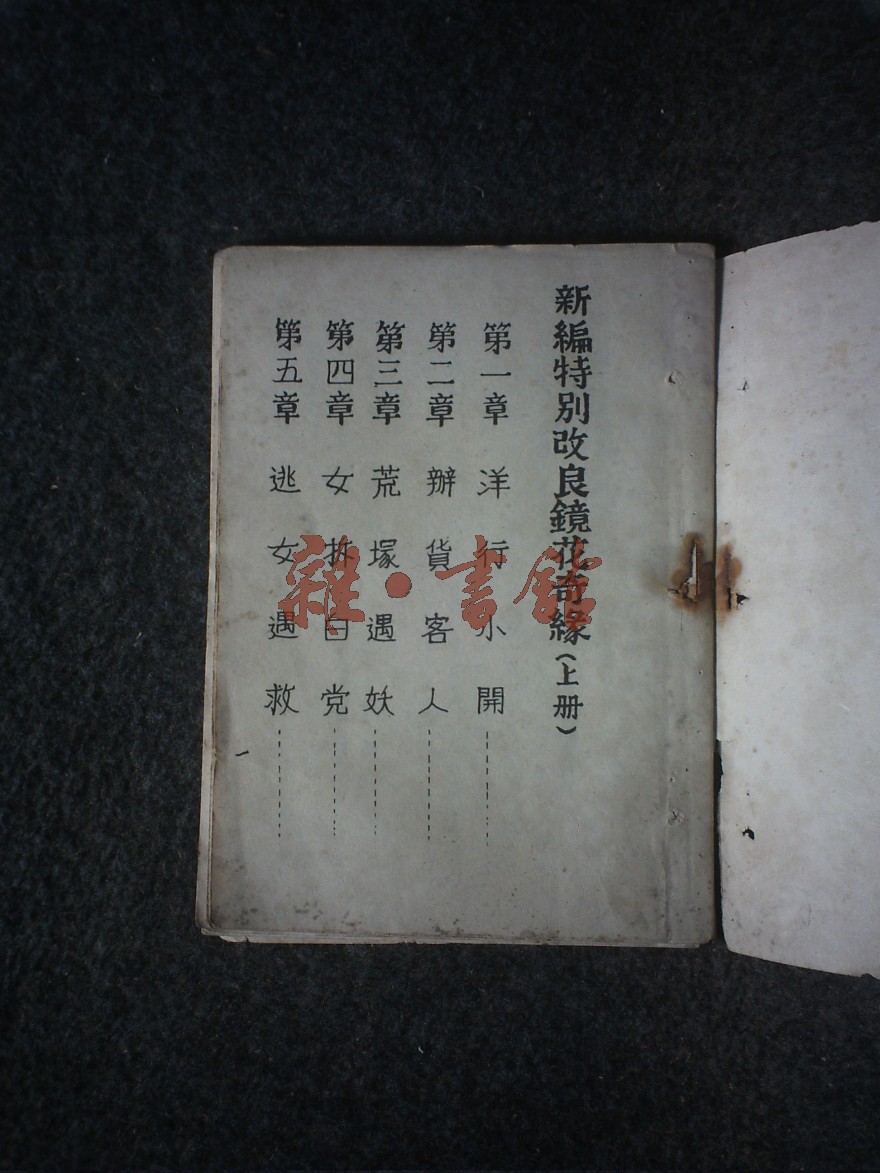 新編特别改良鏡花奇緣(上册)
第一章 洋行小開
第二章 辦貨客人
第三章 荒塚遇妖
第四章 女拆白党
第五章 逃女遇救
雜·書館